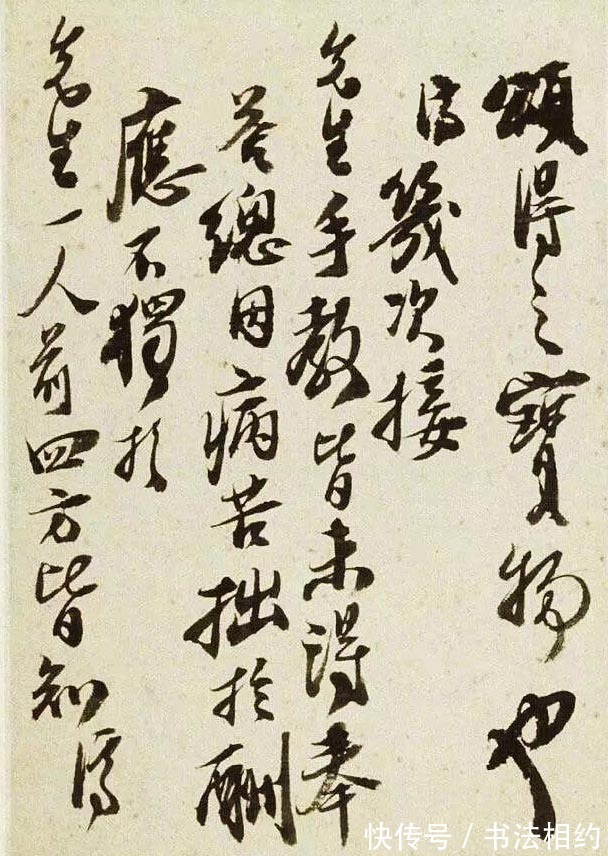 頌得之寶物也
濟幾次接
先生手教皆未得奉
答總因病苦拙於酬
應不獨於
先生一人前四方皆知濟
快传号 / 书法相约